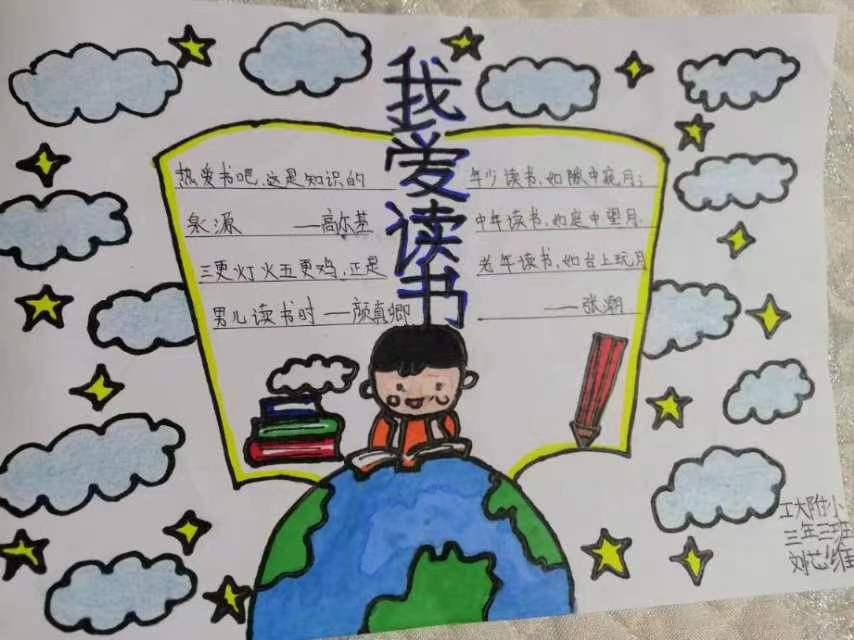 我爱读书
热爱书吧,这是知识的
泉源 ——高尔基
三更灯火五更鸡,正是
男儿读书时 ——颜真卿
年少读书,如隙中窥月;
中年读书,如庭中望月.
老年读书,如台上玩月
——张潮
工大附小
三年三班